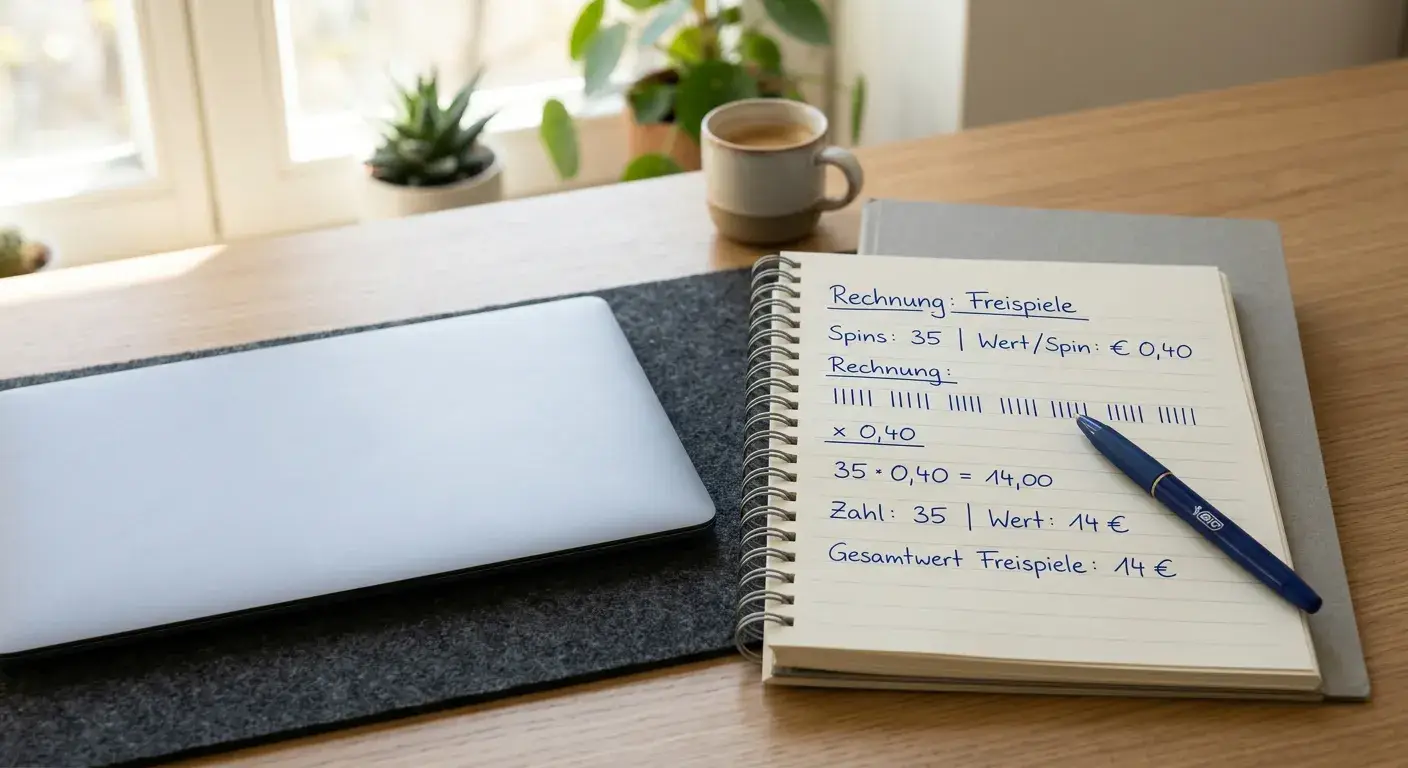 Rechnung: Freispiele
Spins: 35 | Wert/Spin: € 0,40
Rechnung:
||||| ||||| ||||| ||||| ||||| ||||| |||||
× 0,40
35 · 0,40 = 14,00
Zahl: 35 | Wert: 14 €
Gesamtwert Freispiele: 14 €